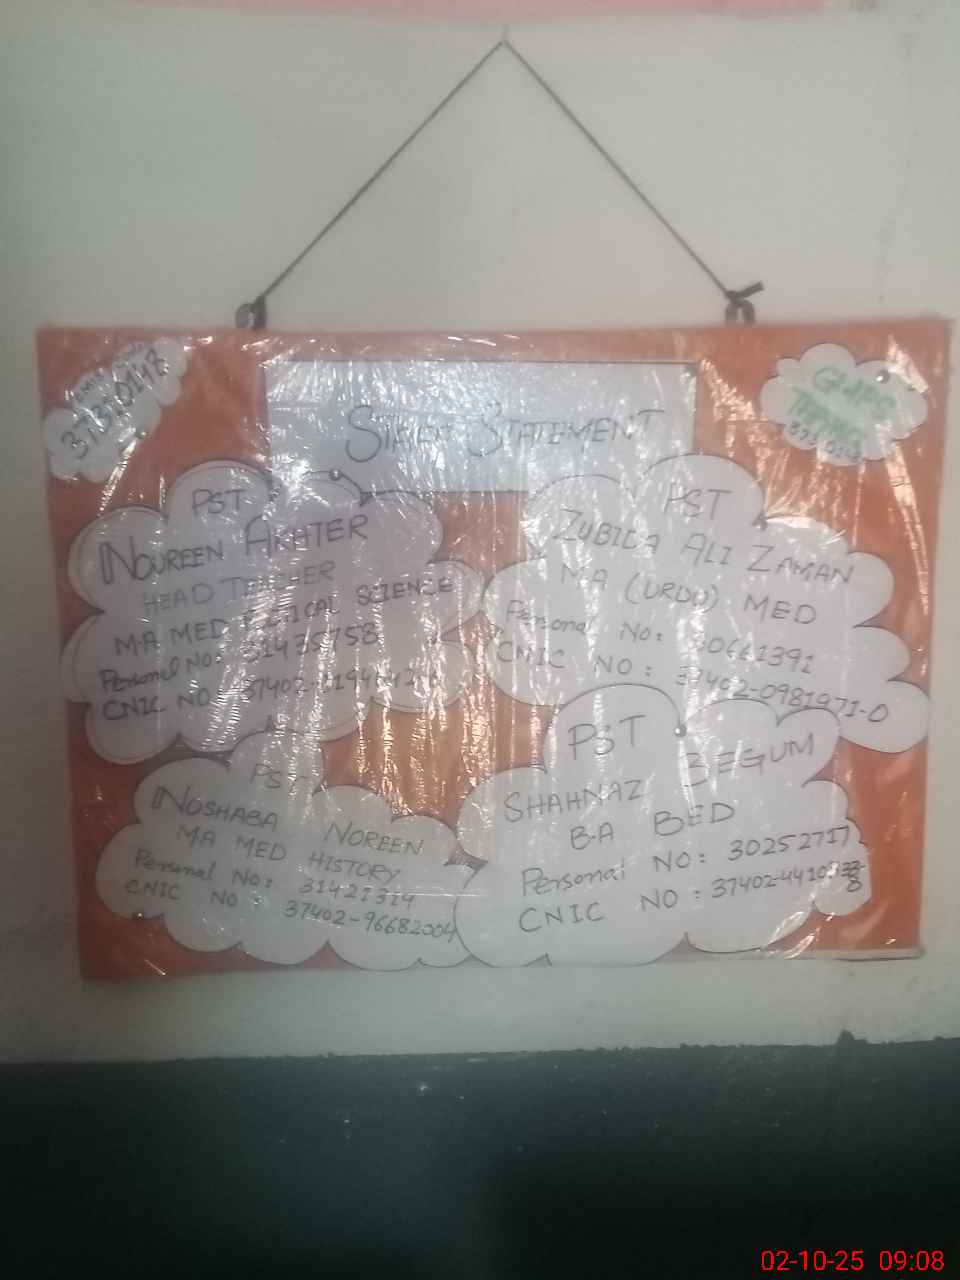 37320148
GMPS
37320148
STAFF STATEMENT
PST
NOUREEN AKHTER
HEAD TEACHER
M.A MED POLITICAL SCIENCE
Personal No: 31435758
CNIC NO:
PST
ZUBIDA ALI ZAMAN
M.A (URDU) MED
Personal No: 30661391
CNIC NO: 37402-0981971-0
PST
NOSHABA NOREEN
M.A MED HISTORY
Personal No: 31421314
CNIC NO: 37402-96682004
PST
SHAHNAZ BEGUM
B.A BED
Personal NO: 30252717
CNIC NO:
02-10-25 09:08